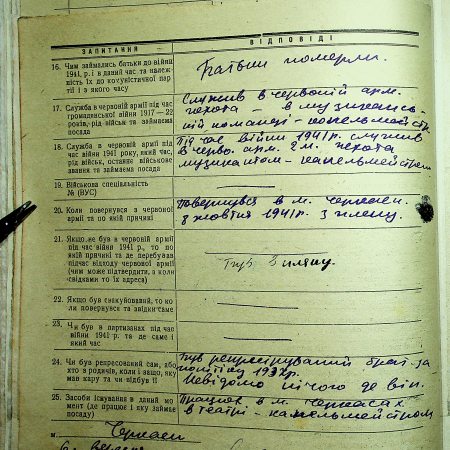 ЗАПИТАННЯ
ВІДПОВІДІ
16. Чим займались батьки до війни
1941 р. і в даний час та належ-
ність їх до комуністичної пар-
тії і з якого часу
Батьки померли.
17. Служба в червоній армії під час
громадянської війни 1917—22
років, рід військ та займаєма
посада
Служив в червоній арм.
пехота – в музикансь-
кій команді – капельмейстр.
18. Служба в червоній армії під
час війни 1941 року, який час,
рід військ, останнє військове
звання та займаєма посада
Під час війни 1941 р. служив
в черво. арм. 2 м. пехота
музикантом – капельмейстром
19. Військова спеціальність
№ (ВУС)
20. Коли повернувся з червоної
армії та по якій причині
Повернувся в м. Черкаси.
з жовтня 1941 р. з плену.
21. Якщо не був в червоній армії
під час війни 1941 р., то по
якій причині та де перебував
під час відходу червоної армії
(чим може підтвердити, а коли
свідками то їх адреса)
Був в плену.
22. Якщо був евакуйований, то ко-
ли повернувся та звідки саме
23. Чи був в партизанах під час
війни 1941 р. та де саме і
який час
24. Чи був репресований сам, або
хто з родичів, коли і защо, яку
мав кару та чи відбув її
Був репресируваний брат – за
політику 1937 р.
Невідомо нічого де він.
25. Засоби існування в даний мо-
мент (де працює і яку займає
посаду)
Працюю в м. Черкасах
в театрі – капельмейстром
м. Черкаси